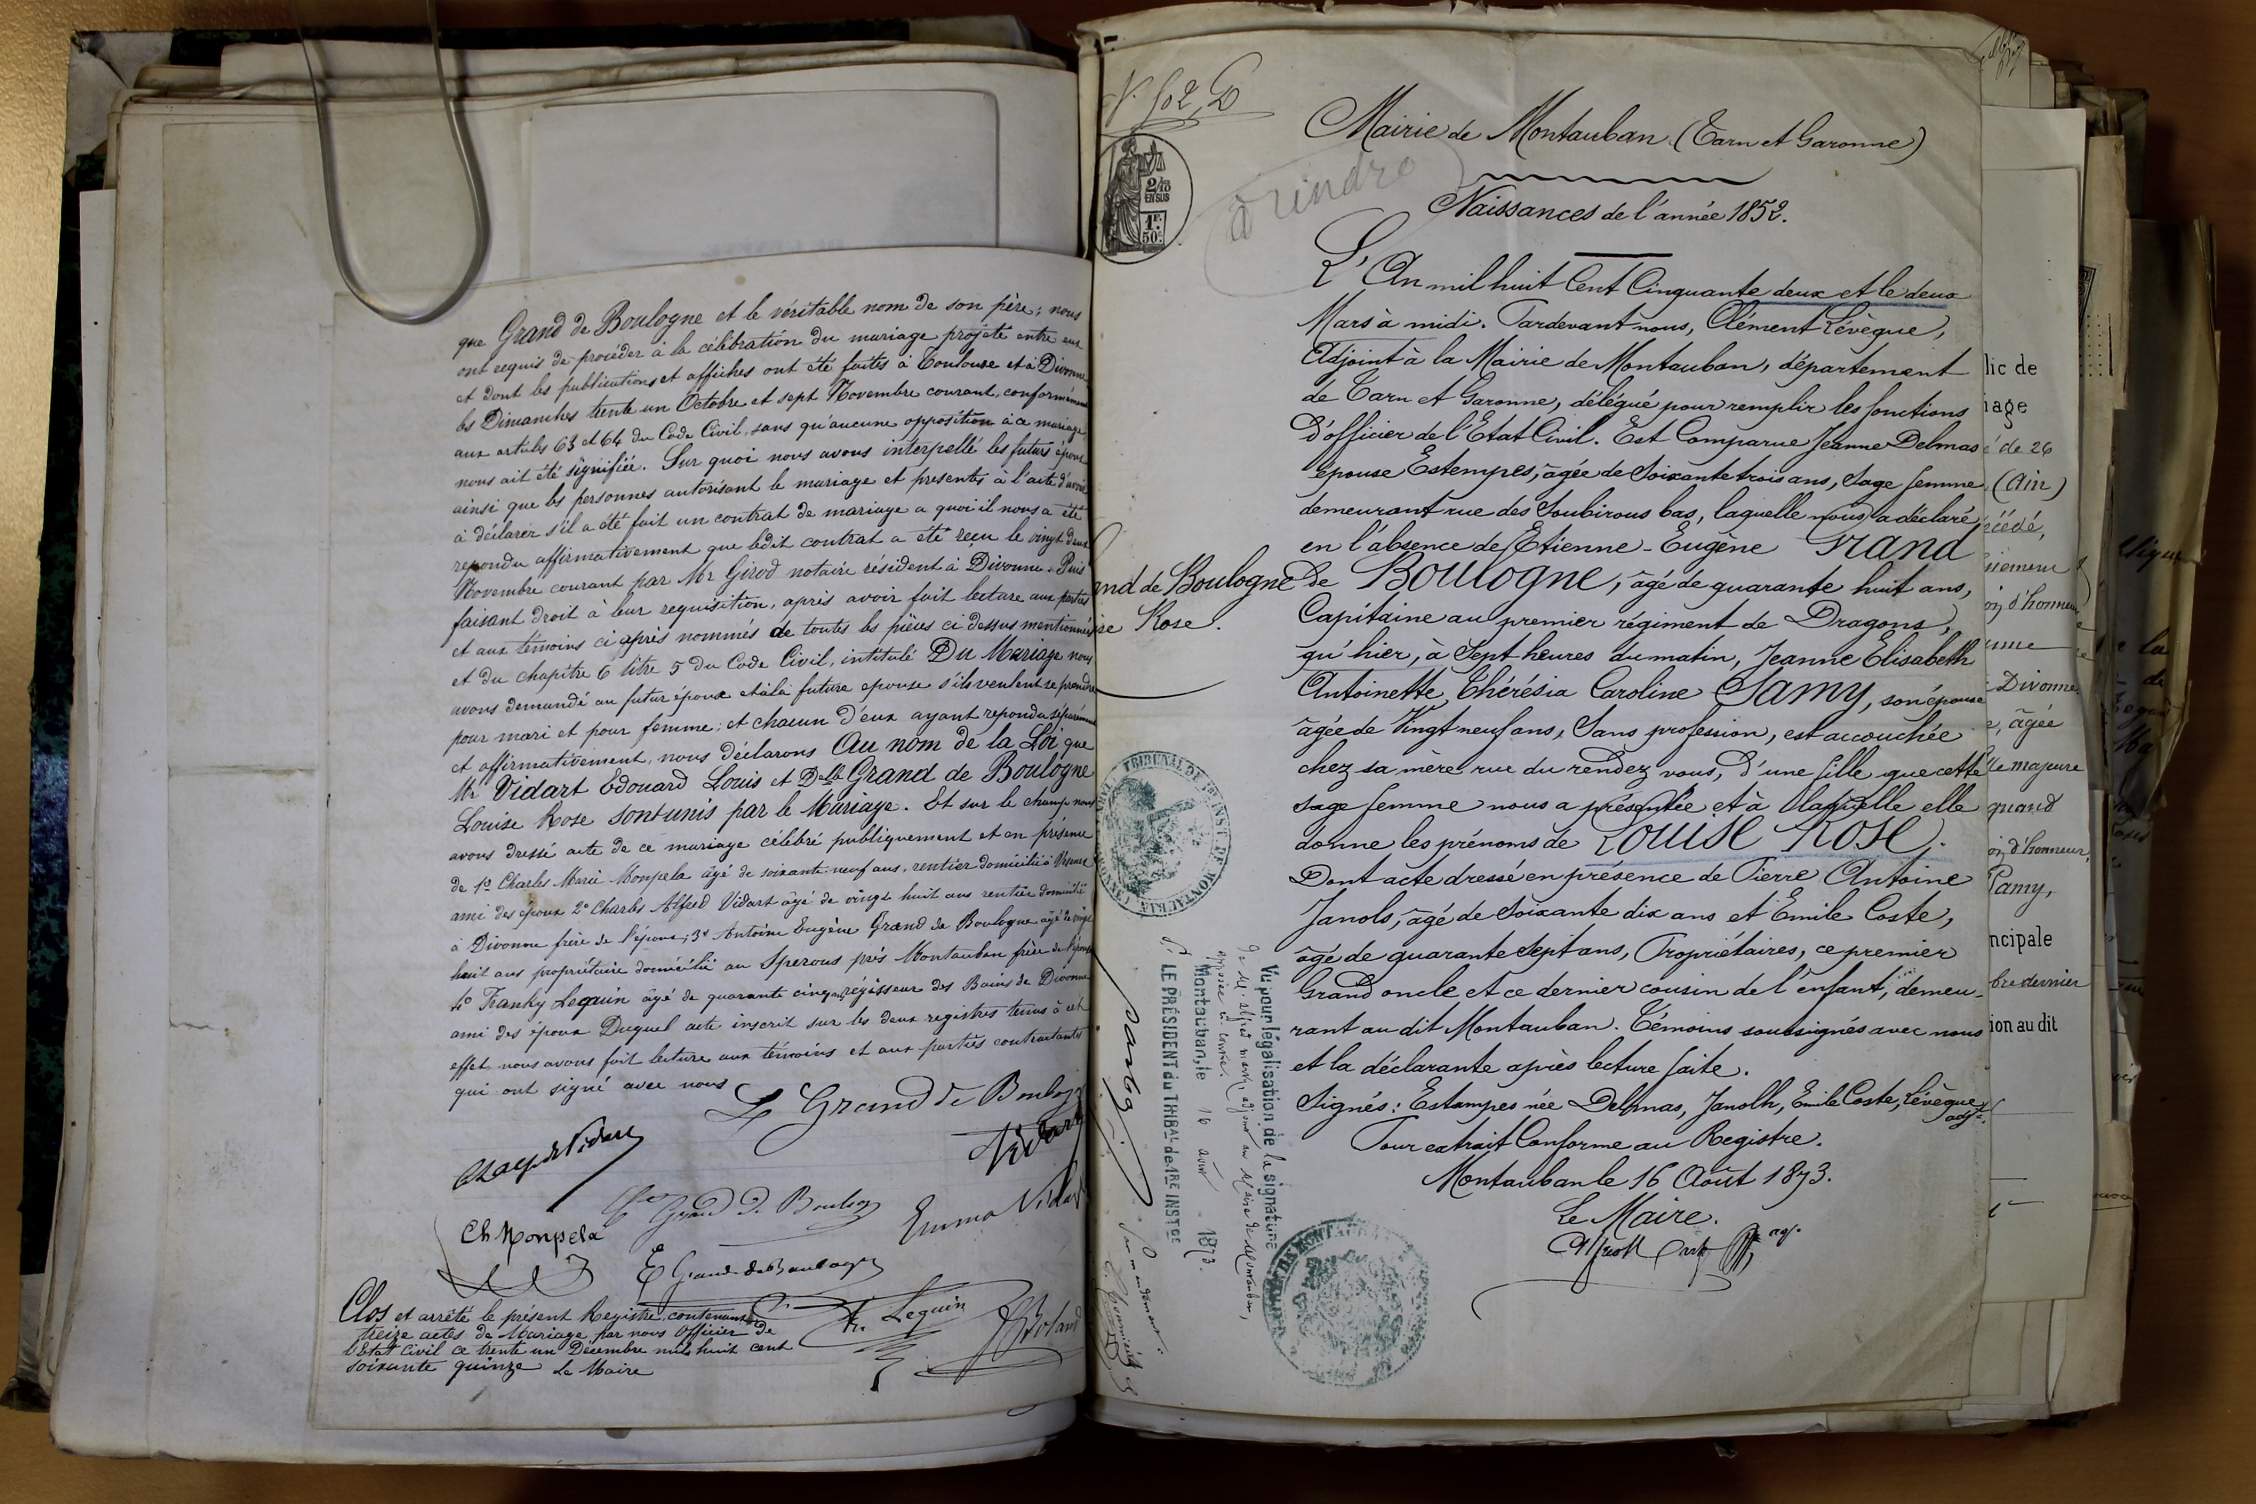 que Grand de Boulogne et le véritable nom de son père; nous
ont requis de procéder à la célébration du mariage projeté entre eux
et dont les publications et affiches ont été faites à Toulouse et à Divonne
les Dimanches trente un Octobre et sept Novembre courant, conformément
aux articles 63 et 64 du Code Civil, sans qu'aucune opposition à ce mariage
nous ait été signifiée. Sur quoi nous avons interpellé les futurs époux
ainsi que les personnes autorisant le mariage et presentes à l'acte d'avoir
à déclarer s'il a été fait un contrat de mariage a quoi il nous a été
repondu affirmativement que ledit contrat a été reçu le vingt deux
Novembre courant par Mr Girod notaire résident à Divonne. Puis
faisant droit à leur requisition, après avoir fait lecture aux parties
et aux témoins ci après nommés de toutes les pièces ci dessus mentionnées
et du chapitre 6 titre 5 du Code Civil, intitulé Du Mariage nous
avons demandé au futur époux et à la future epouse s'ils veulent se prendre
pour mari et pour femme; et chacun d'eux ayant repondu séparément
et affirmativement, nous déclarons Au nom de la Loi que
Mr Vidart Edouard Louis et Dlle Grand de Boulogne
Louise Rose sont unis par le Mariage. Et sur le champ nous
avons dressé acte de ce mariage célébré publiquement et en présence
de 1º Charles Marie Monpela âgé de soixante neuf ans, rentier domicilié à
ami des époux 2º Charles Alfred Vidart âgé de vingt huit ans rentier domicilié
à Divonne frère de l'époux; 3º Antoine Eugène Grand de Boulogne âgé de vingt
huit ans propriétaire domicilié au Sperous près Montauban frère de l'épouse
4º Franky Lequin âgé de quarante cinq ans, régisseur des Bains de Divonne
ami des époux Duquel acte inscrit sur les deux registres tenus à cet
effet nous avons fait lecture aux témoins et aux parties contractantes
qui ont signé avec nous
L Grand de Boulogne
Vidart
Grand de Boulogne
Emma Vidart
Ch Monpela
E Grand de Boulogne
Lequin
Clos et arrêté le présent Registre contenant
treize actes de Mariage par nous Officier de
l'Etat civil ce trente un Décembre mil huit cent
soixante quinze Le Maire
2/10
EN SUS
1F.
50c.
à rendre
Mairie de Montauban (Tarn et Garonne)
Naissances de l'année 1852.
L'An mil huit Cent Cinquante deux et le deux
Mars à midi. Pardevant nous, Clément Lévêque,
Adjoint à la Mairie de Montauban, département
de Tarn et Garonne, délégué pour remplir les fonctions
d'officier de l'Etat Civil. Est Comparue Jeanne Delmas
épouse Estempes, âgée de Soixante trois ans, Sage femme
demeurant rue des Soubirous bas, laquelle nous a déclaré
en l'absence de Etienne-Eugène Grand
de Boulogne, âgé de quarante huit ans,
Capitaine au premier régiment de Dragons,
qu'hier, à Sept heures du matin, Jeanne Elisabeth
Antoinette, Thérésia Caroline Samy, son épouse
âgée de Vingt neuf ans, Sans profession, est accouchée
chez sa mère rue du rendez vous, d'une fille que cette
sage femme nous a présentée et à laquelle elle
donne les prénoms de Louise Rose.
Dont acte dressé en présence de Pierre Antoine
Janols, âgé de Soixante dix ans et Emile Coste,
âgé de quarante Sept ans, Propriétaires, ce premier
Grand oncle et ce dernier cousin de l'enfant, demeu-
rant au dit Montauban. Témoins soussignés avec nous
et la déclarante après lecture faite.
Signés: Estampes née Delmas, Janolh, Emile Coste, Lévêque
adjt.
Pour extrait Conforme au Registre.
Montauban le 16 Août 1873.
Le Maire.
and de Boulogne
se Rose.
TRIBUNAL DE 1re INST DE MONTAUBAN
Vu pour légalisation de la signature
de Mr. Alfred adjoint au Maire de Montauban,
apposée ci contre.
Montauban, le 16 août 1873.
P. LE PRÉSIDENT du TRIBAL de 1RE INSTCE
lic de
iage
é de 26
(Ain)
écédé,
d'honneur
Divonne
, âgée
lle majeure
quand
d'honneur,
ncipale
bre dernier
ion au dit